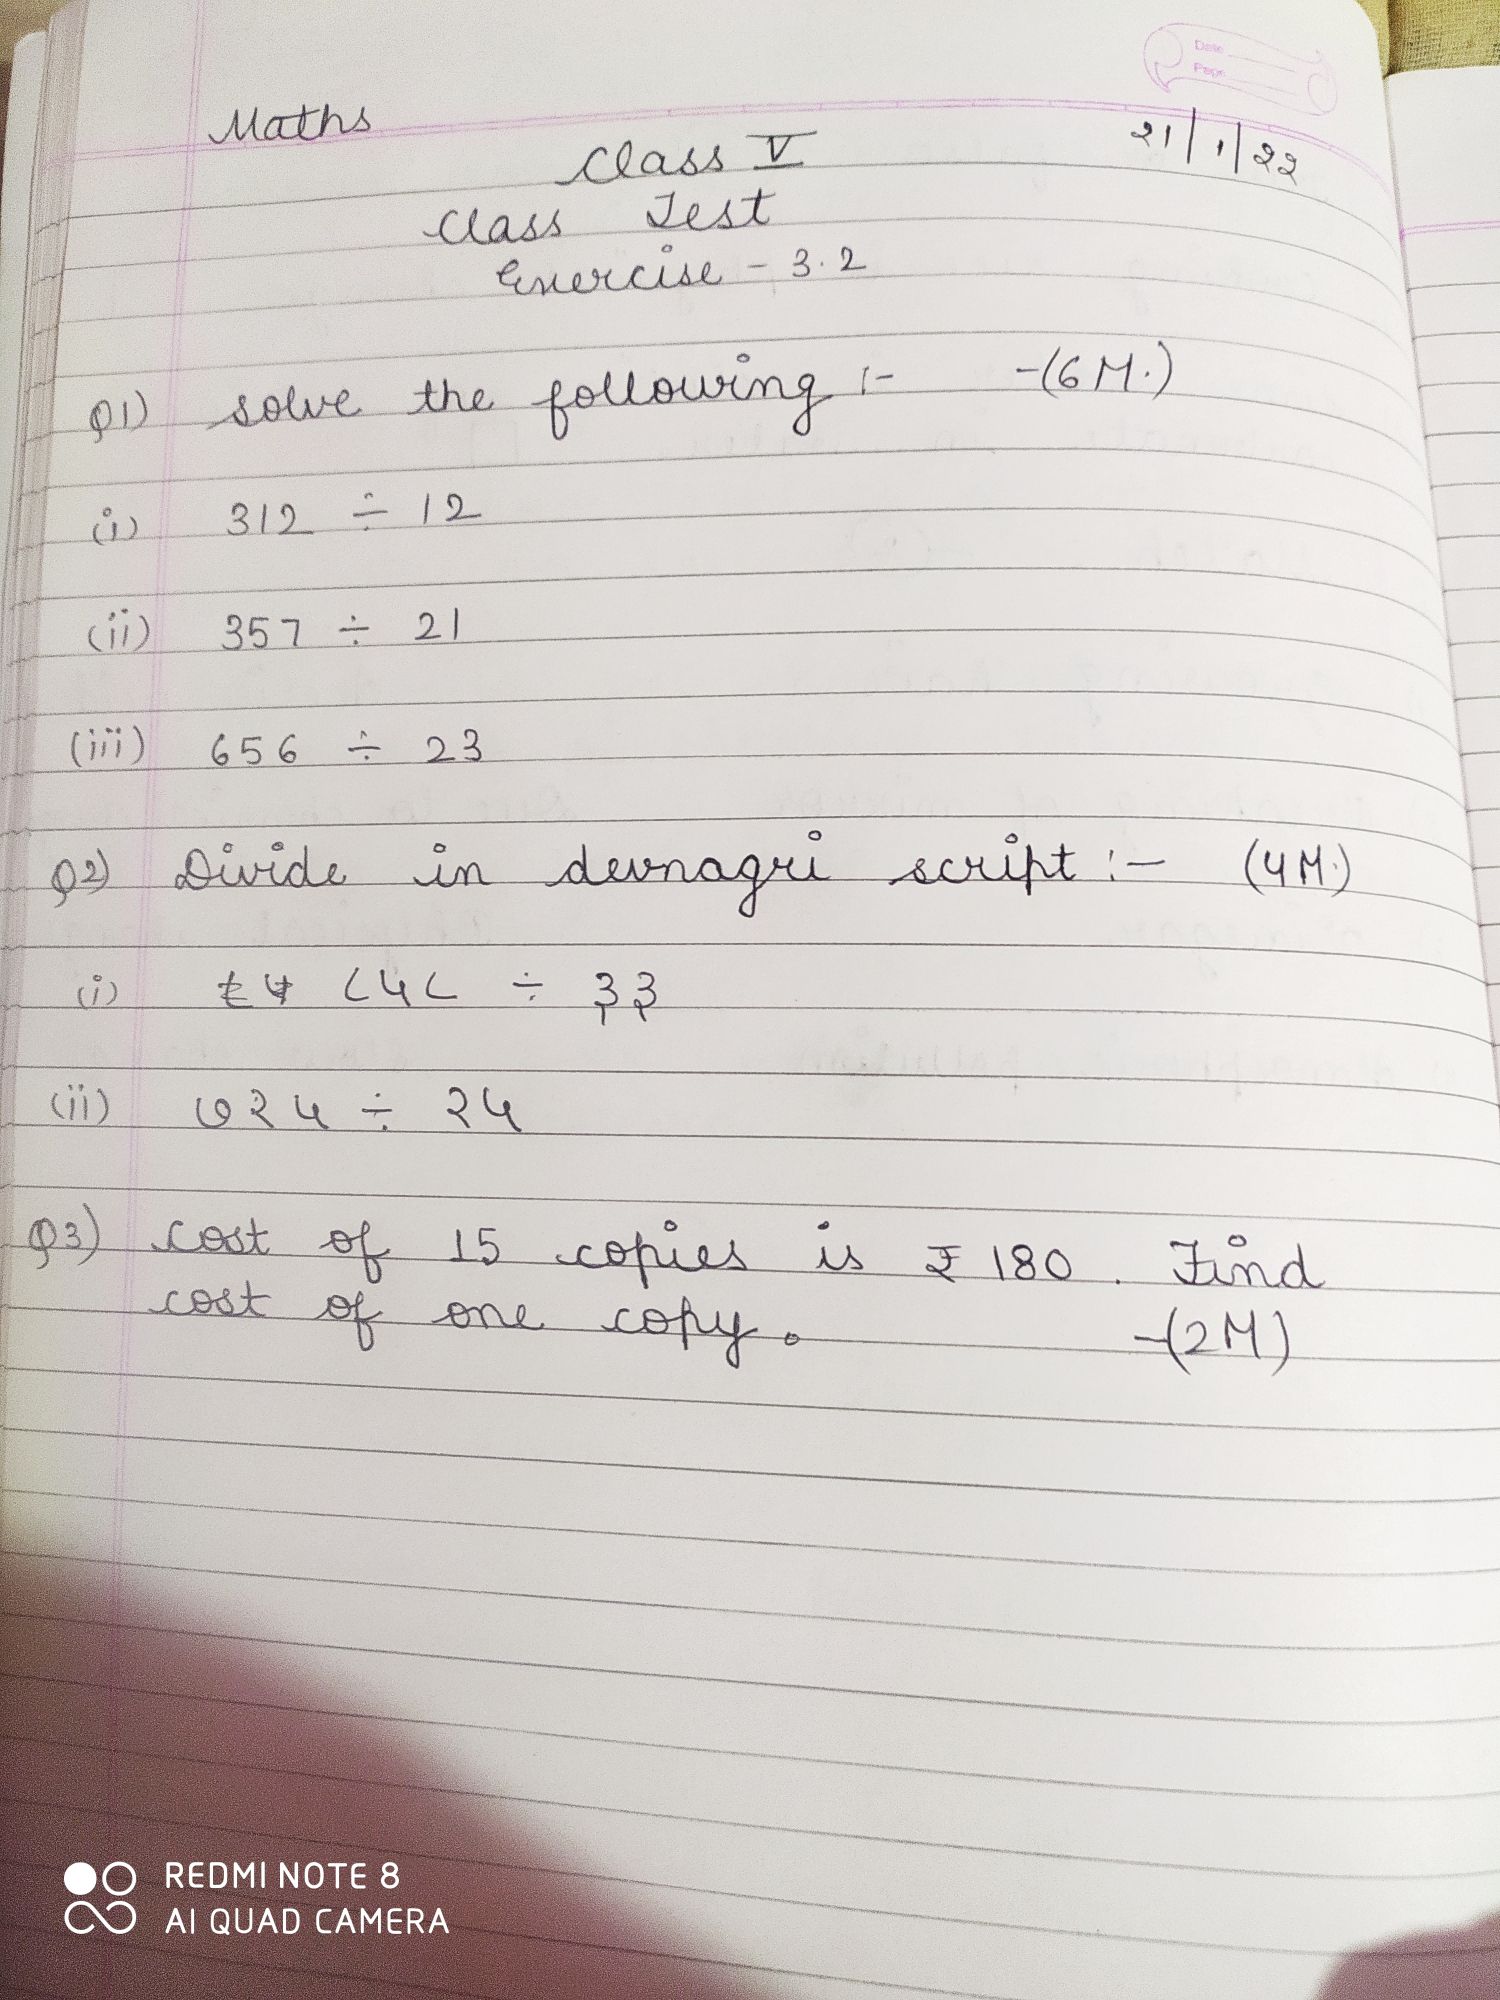 Date
Page
Maths
21/1/22
Class V
Class Test
Exercise - 3.2
Q1) Solve the following :- -(6M.)
(i) 312 ÷ 12
(ii) 357 ÷ 21
(iii) 656 ÷ 23
Q2) Divide in devnagri script :- (4M.)
(i) ८५८ ÷ ३३
(ii) ७२५ ÷ २५
Q3) Cost of 15 copies is ₹ 180. Find
cost of one copy. -(2M)
REDMI NOTE 8
AI QUAD CAMERA